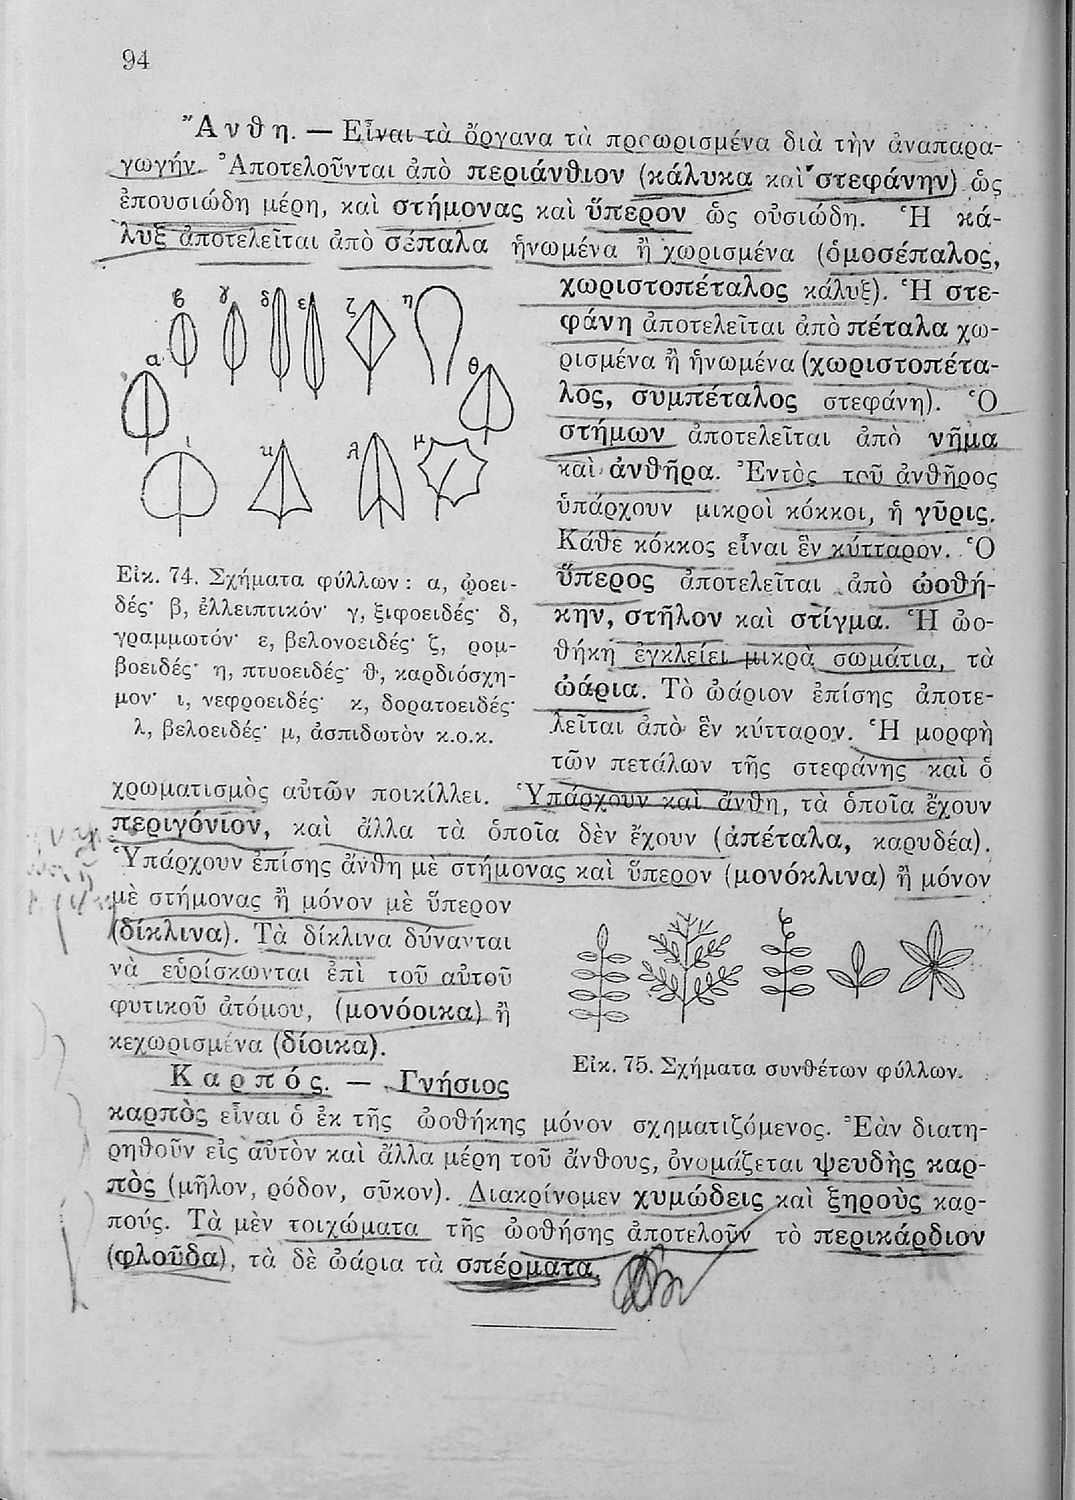 94
Ἄνθη. — Εἶναι τὰ ὄργανα τὰ προωρισμένα διὰ τὴν ἀναπαρα-
γωγήν. Ἀποτελοῦνται ἀπὸ περιάνθιον (κάλυκα καὶ στεφάνην) ὡς
ἐπουσιώδη μέρη, καὶ στήμονας καὶ ὕπερον ὡς οὐσιώδη. Ἡ κά-
λυξ ἀποτελεῖται ἀπὸ σέπαλα ἡνωμένα ἢ χωρισμένα (ὁμοσέπαλος,
χωριστοπέταλος κάλυξ). Ἡ στε-
φάνη ἀποτελεῖται ἀπὸ πέταλα χω-
ρισμένα ἢ ἡνωμένα (χωριστοπέτα-
λος, συμπέταλος στεφάνη). Ὁ
στήμων ἀποτελεῖται ἀπὸ νῆμα
καὶ ἀνθῆρα. Ἐντὸς τοῦ ἀνθῆρος
ὑπάρχουν μικροὶ κόκκοι, ἡ γῦρις.
Κάθε κόκκος εἶναι ἓν κύτταρον. Ὁ
ὕπερος ἀποτελεῖται ἀπὸ ὠοθή-
κην, στῆλον καὶ στίγμα. Ἡ ὠο-
θήκη ἐγκλείει μικρὰ σωμάτια, τὰ
ὠάρια. Τὸ ὠάριον ἐπίσης ἀποτε-
λεῖται ἀπὸ ἓν κύτταρον. Ἡ μορφὴ
τῶν πετάλων τῆς στεφάνης καὶ ὁ
α β γ δ ε ζ η θ
ι κ λ μ
Εἰκ. 74. Σχήματα φύλλων : α, ᾠοει-
δές· β, ἐλλειπτικόν· γ, ξιφοειδές· δ,
γραμμωτόν· ε, βελονοειδές· ζ, ρομ-
βοειδές· η, πτυοειδές· θ, καρδιόσχη-
μον· ι, νεφροειδές· κ, δορατοειδές·
λ, βελοειδές· μ, ἀσπιδωτὸν κ.ο.κ.
χρωματισμὸς αὐτῶν ποικίλλει. Ὑπάρχουν καὶ ἄνθη, τὰ ὁποῖα ἔχουν
περιγόνιον, καὶ ἄλλα τὰ ὁποῖα δὲν ἔχουν (ἀπέταλα, καρυδέα).
Ὑπάρχουν ἐπίσης ἄνθη μὲ στήμονας καὶ ὕπερον (μονόκλινα) ἢ μόνον
μὲ στήμονας ἢ μόνον μὲ ὕπερον
(δίκλινα). Τὰ δίκλινα δύνανται
νὰ εὑρίσκωνται ἐπὶ τοῦ αὐτοῦ
φυτικοῦ ἀτόμου, (μονόοικα) ἢ
κεχωρισμένα (δίοικα).
Εἰκ. 75. Σχήματα συνθέτων φύλλων.
Καρπός. — Γνήσιος
καρπὸς εἶναι ὁ ἐκ τῆς ὠοθήκης μόνον σχηματιζόμενος. Ἐὰν διατη-
ρηθοῦν εἰς αὐτὸν καὶ ἄλλα μέρη τοῦ ἄνθους, ὀνομάζεται ψευδὴς καρ-
πὸς (μῆλον, ρόδον, σῦκον). Διακρίνομεν χυμώδεις καὶ ξηροὺς καρ-
πούς. Τὰ μὲν τοιχώματα τῆς ὠοθήσης ἀποτελοῦν τὸ περικάρδιον
(φλοῦδα), τὰ δὲ ὠάρια τὰ σπέρματα.